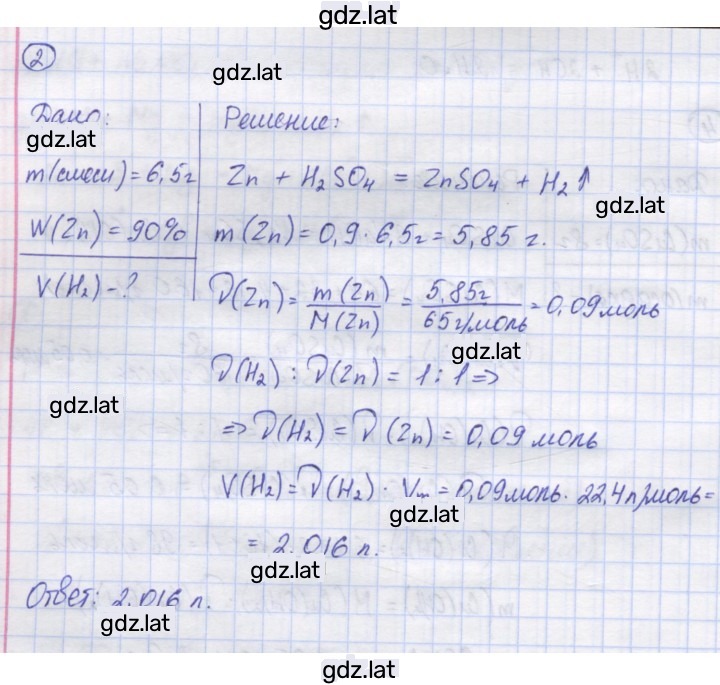 gdz.lat
2
gdz.lat
Дано: Решение:
gdz.lat
m(смеси) = 6,5г Zn + H₂SO₄ = ZnSO₄ + H₂↑
gdz.lat
W(Zn) = 90% m(Zn) = 0,9 · 6,5г = 5,85 г.
V(H₂) - ? ν(Zn) = m(Zn)/M(Zn) = 5,85г/65г/моль = 0,09моль
gdz.lat
ν(H₂) : ν(Zn) = 1 : 1 =>
gdz.lat
=> ν(H₂) = ν(Zn) = 0,09 моль
V(H₂) = ν(H₂) · Vm = 0,09моль · 22,4л/моль =
gdz.lat
= 2.016 л.
gdz.lat
Ответ: 2.016 л.
gdz.lat
gdz.lat